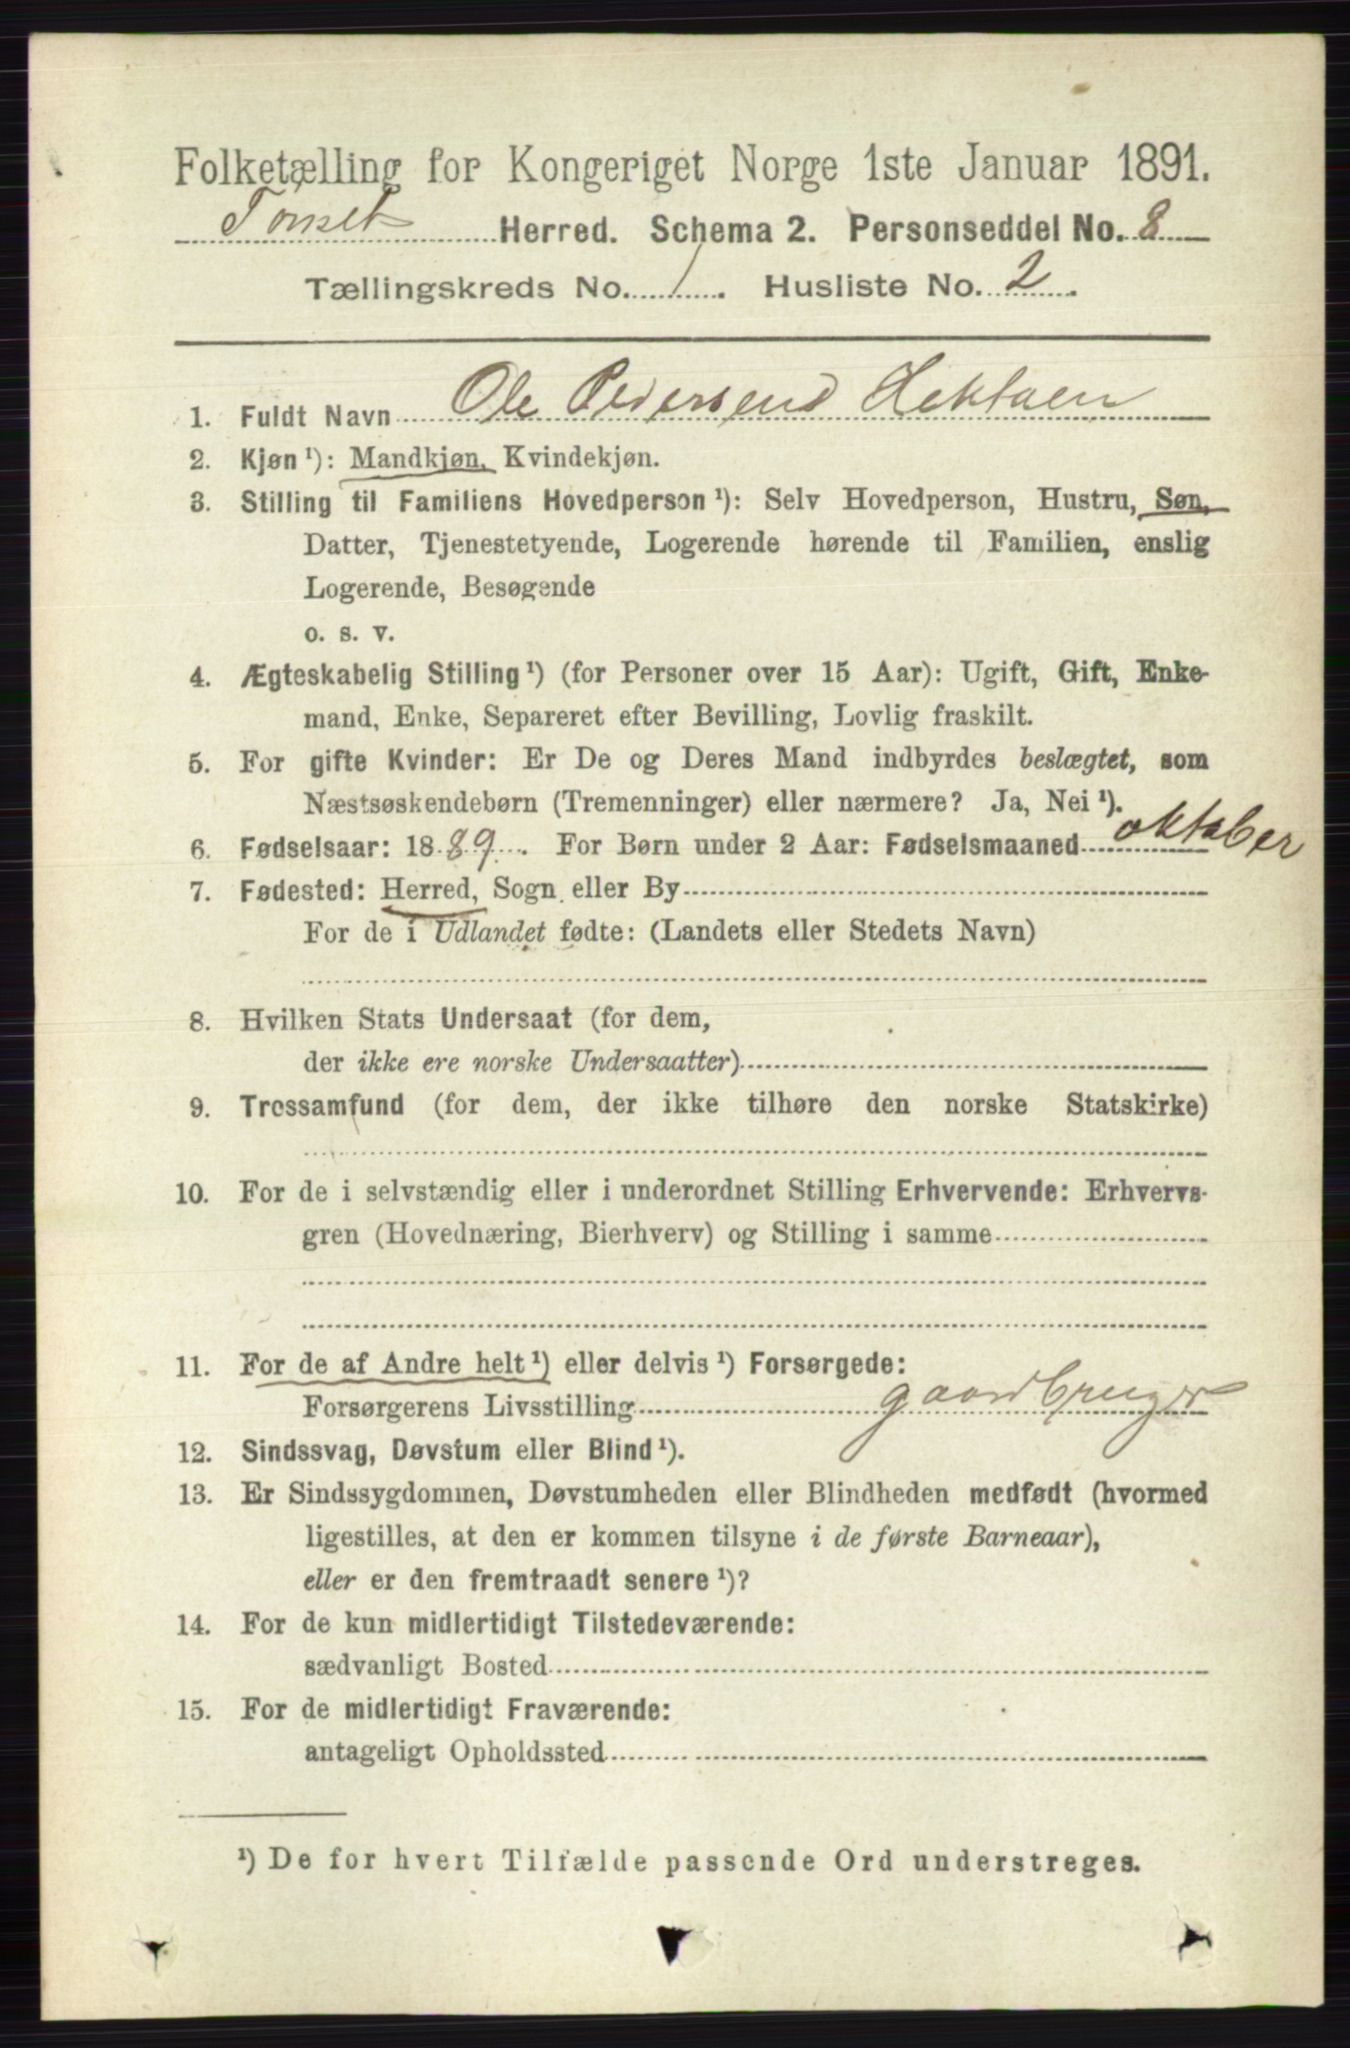 Folketælling for Kongeriget Norge 1ste Januar 1891.
Tønset Herred. Schema 2. Personseddel No. 8
Tællingskreds No. 1. Husliste No. 2.
1. Fuldt Navn Ole Pedersen Hektoen
2. Kjøn ¹): Mandkjøn, Kvindekjøn.
3. Stilling til Familiens Hovedperson ¹): Selv Hovedperson, Hustru, Søn,
Datter, Tjenestetyende, Logerende hørende til Familien, enslig
Logerende, Besøgende
o. s. v.
4. Ægteskabelig Stilling ¹) (for Personer over 15 Aar): Ugift, Gift, Enke-
mand, Enke, Separeret efter Bevilling, Lovlig fraskilt.
5. For gifte Kvinder: Er De og Deres Mand indbyrdes beslægtet, som
Næstsøskendebørn (Tremenninger) eller nærmere? Ja, Nei ¹).
6. Fødselsaar: 1889. For Børn under 2 Aar: Fødselsmaaned oktober
7. Fødested: Herred, Sogn eller By
For de i Udlandet fødte: (Landets eller Stedets Navn)
8. Hvilken Stats Undersaat (for dem,
der ikke ere norske Undersaatter)
9. Trossamfund (for dem, der ikke tilhøre den norske Statskirke)
10. For de i selvstændig eller i underordnet Stilling Erhvervende: Erhvervs-
gren (Hovednæring, Bierhverv) og Stilling i samme
11. For de af Andre helt ¹) eller delvis ¹) Forsørgede:
Forsørgerens Livsstilling gaardbruger
12. Sindssvag, Døvstum eller Blind ¹).
13. Er Sindssygdommen, Døvstumheden eller Blindheden medfødt (hvormed
ligestilles, at den er kommen tilsyne i de første Barneaar),
eller er den fremtraadt senere ¹)?
14. For de kun midlertidigt Tilstedeværende:
sædvanligt Bosted
15. For de midlertidigt Fraværende:
antageligt Opholdssted
¹) De for hvert Tilfælde passende Ord understreges.